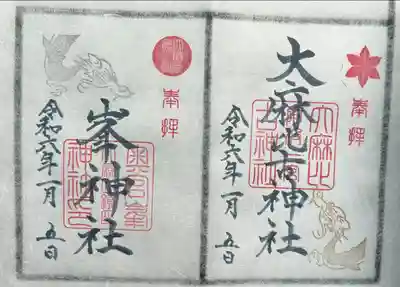 奉拝
大麻比古神社
令和六年一月 五日
大麻比古神社
奉拝
峯神社
令和六年一月 五日